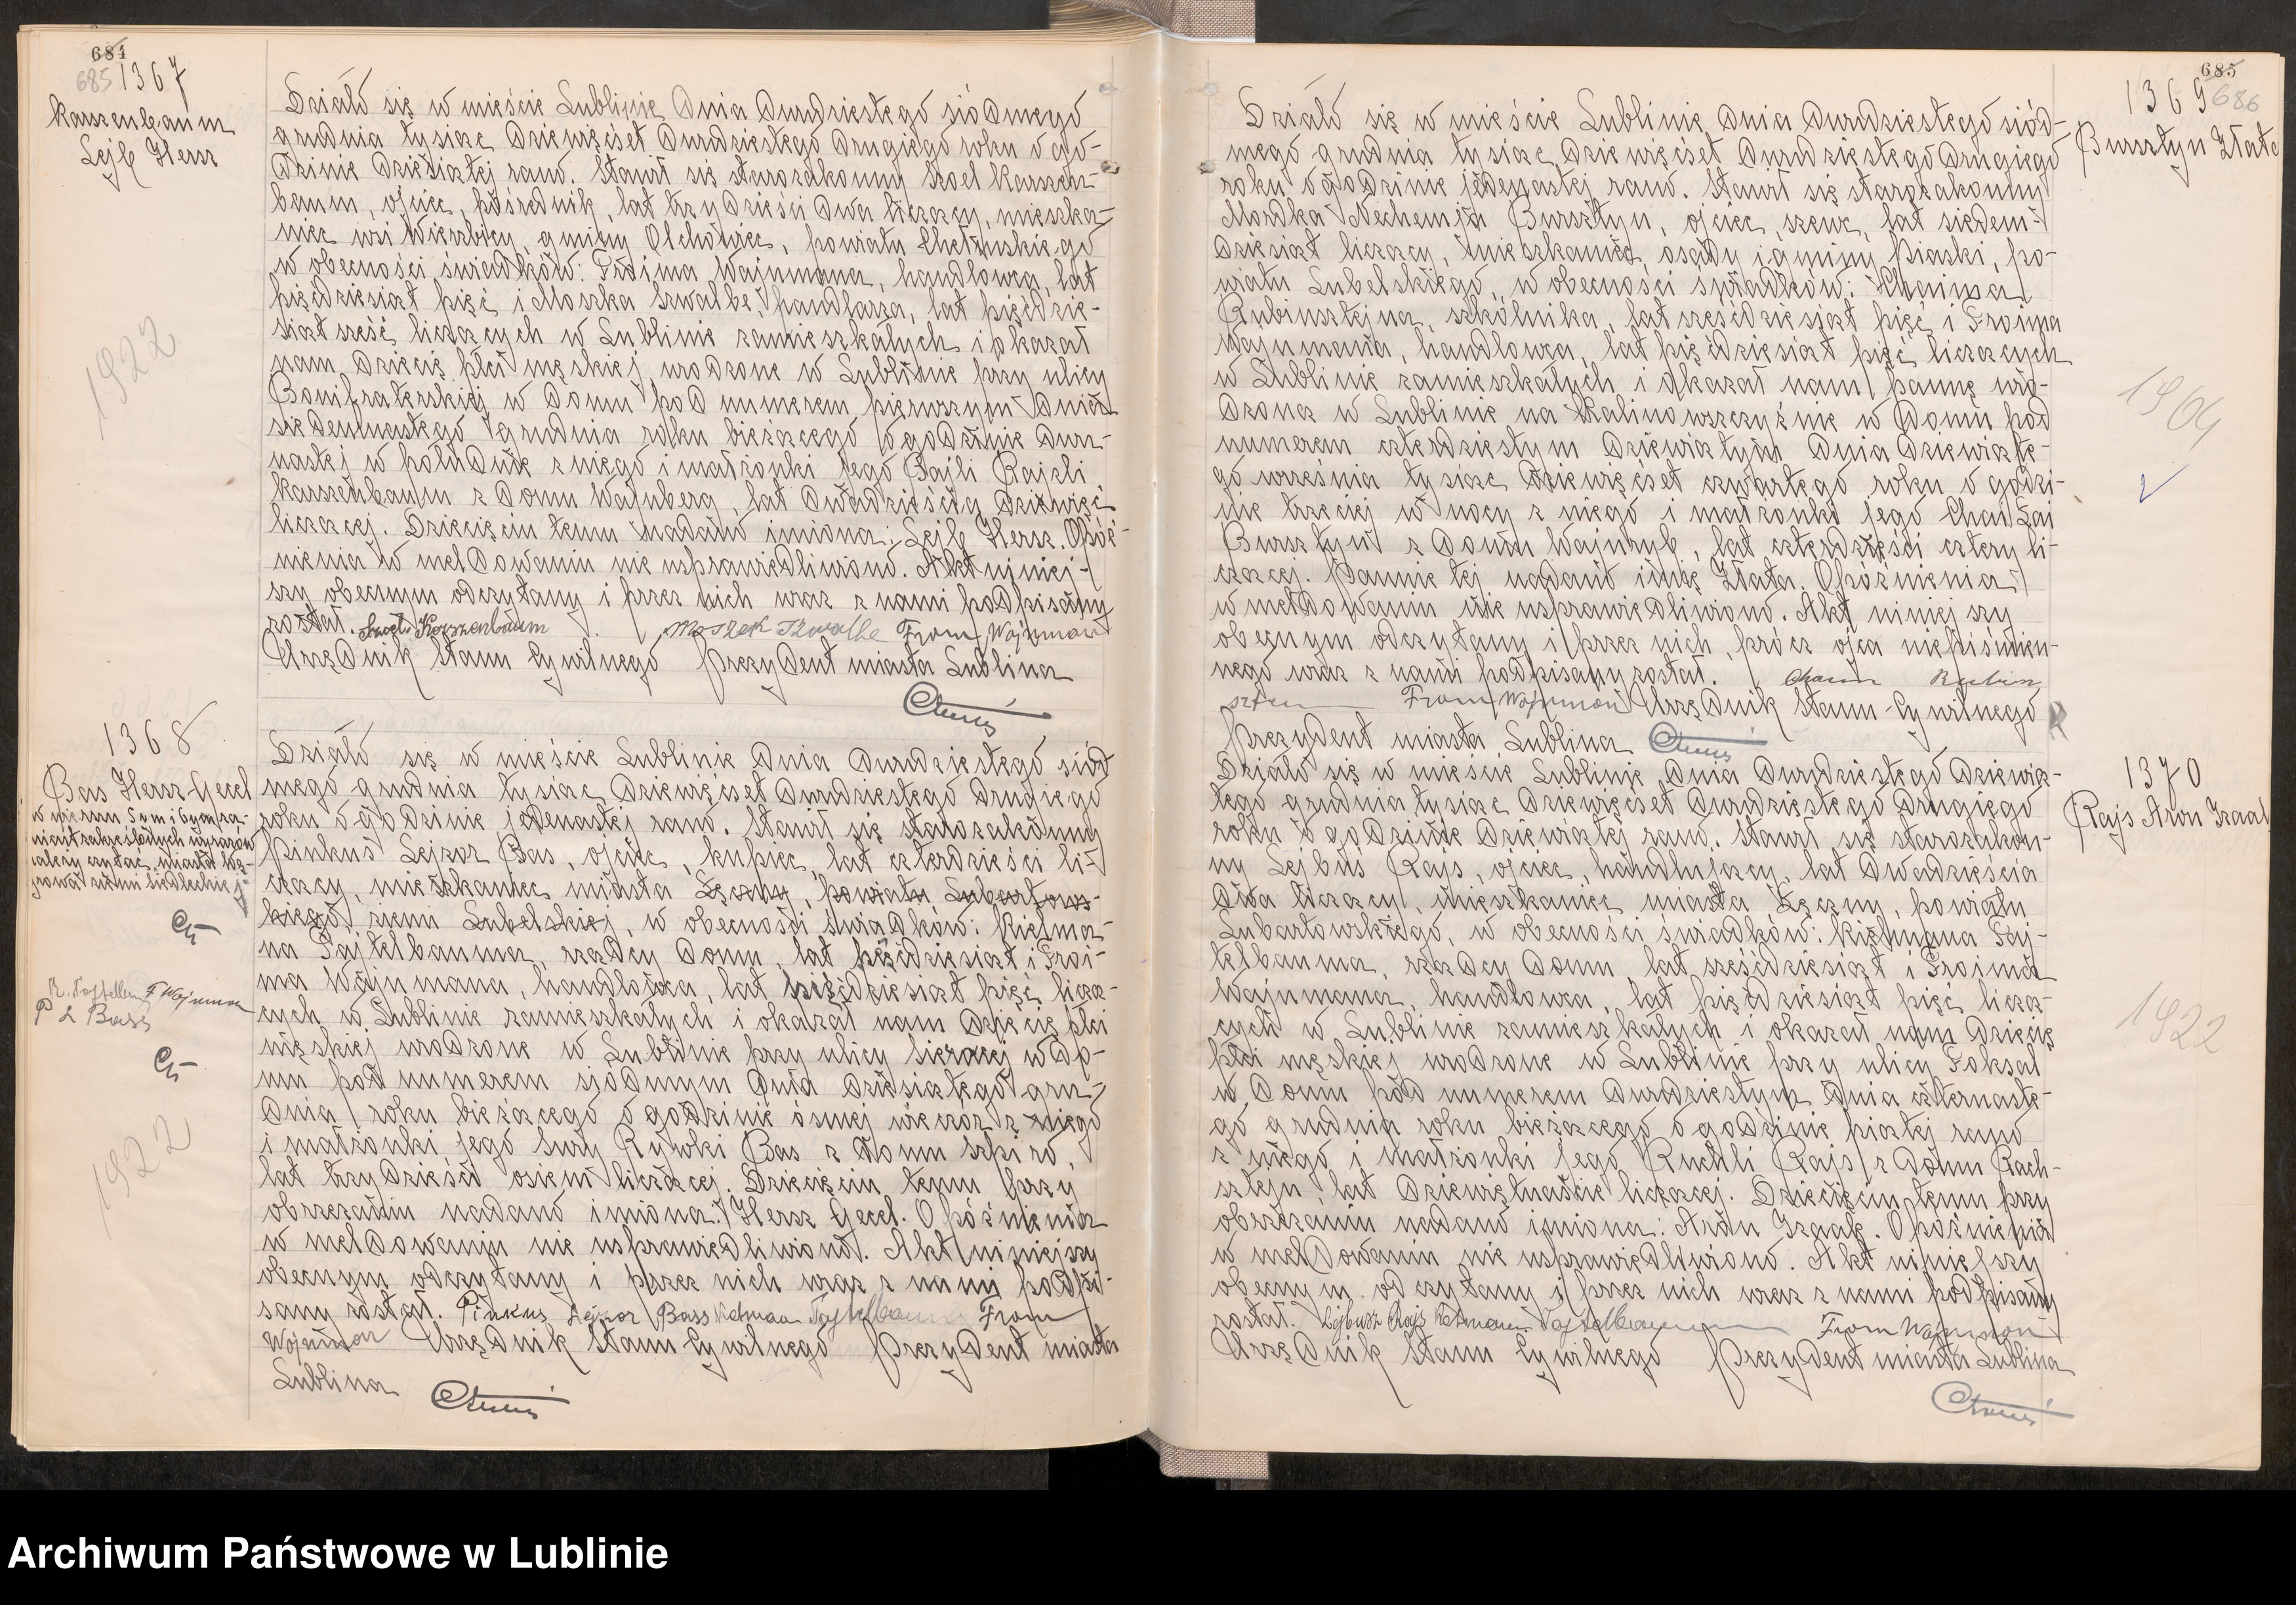 684
685 1367
Karszenbaum
Lejb Hersz
1922
Działo się w mieście Lublinie dnia dwudziestego siódmego
grudnia tysiąc dziewięćset dwudziestego drugiego roku o go-
dzinie dziesiątej rano. Stawił się starozakonny Szoel Karszen-
baum, ojciec, pośrednik, lat trzydzieści dwa liczący, mieszka-
niec wsi Wierzbicy, gminy Olchowiec, powiatu Chełmskiego
w obecności świadków: Froima Wajnmana, handlowca, lat
pięćdziesiąt pięć i Moszka Szwalbe, handlarza, lat pięćdzie-
siąt sześć liczących w Lublinie zamieszkałych i okazał
nam dziecię płci męskiej urodzone w Lublinie przy ulicy
Bonifraterskiej w domu pod numerem pierwszym dnia
siedemnastego grudnia roku bieżącego o godzinie dwu-
nastej w południe z niego i małżonki jego Bajli Rajzli
Karszenbaum z domu Wajnberg, lat dwadzieścia dziewięć
liczącej. Dziecięciu temu nadano imiona: Lejb Hersz. Opóź-
nienia w meldowaniu nie usprawiedliwiono. Akt niniej-
szy obecnym odczytany i przez nich wraz z nami podpisany
został. Karszenbaum Moszek Szwalbe From Wajnman
Urzędnik Stanu Cywilnego Prezydent miasta Lublina
1368
Bas Hersz-Gecel
w wierszu 5 em i 6 ym za-
miast zakreślonych wyrazów
należy czytać miasta Wę-
growa ziemi Siedleckiej
K. Tajtelbaum F Wajnman
P L Bass
1922
Działo się w mieście Lublinie dnia dwudziestego siód
mego grudnia tysiąc dziewięćset dwudziestego drugiego
roku o godzinie jedenastej rano. Stawił się starozakonny
Pinkus Lejzor Bas, ojciec, kupiec, lat czterdzieści li-
czący, mieszkaniec miasta Łęczny, powiatu Lubartows-
kiego ziemi Lubelskiej, w obecności świadków: Kielma-
na Tajtelbauma, rządcy domu, lat sześćdziesiąt i Froi-
ma Wajnmana, handlowca, lat pięćdziesiąt pięć liczą-
cych w Lublinie zamieszkałych i okazał nam dziecię płci
męskiej urodzone w Lublinie przy ulicy Sierocej w do-
mu pod numerem siódmym dnia dziesiątego gru-
dnia roku bieżącego o godzinie ósmej wieczór z niego
i małżonki jego Sury Rywki Bas z domu Szkiro,
lat trzydzieści osiem liczącej. Dziecięciu temu przy
obrzezaniu nadano imiona: Hersz Gecel. Opóźnienia
w meldowaniu nie usprawiedliwiono. Akt niniejszy
obecnym odczytany i przez nich wraz z nami podpi-
sany został. Pinkus Lejzor Bass Kelman Tajtelbaum From
Wajnman Urzędnik Stanu Cywilnego Prezydent miasta
Lublina
685
1369 686
Bursztyn Złata
1904
Działo się w mieście Lublinie dnia dwudziestego siód-
mego grudnia tysiąc dziewięćset dwudziestego drugiego
roku o godzinie jedenastej rano. Stawił się starozakonny
Mordka Nechemja Bursztyn, ojciec, szewc, lat siedem-
dziesiąt liczący, mieszkaniec, osady i gminy Piaski, po-
wiatu Lubelskiego, w obecności świadków: Chaima
Rubinsztejna, szkolnika, lat sześćdziesiąt pięć i Froima
Wajnmana, handlowca, lat pięćdziesiąt pięć liczących
w Lublinie zamieszkałych i okazał nam pannę uro-
dzoną w Lublinie na Kalinowszczyźnie w domu pod
numerem czterdziestym dziewiątym dnia dziewiąte-
go września tysiąc dziewięćset czwartego roku o godzi-
nie trzeciej w nocy z niego i małżonki jego Chai Łai
Bursztyn z domu Wajnryb, lat czterdzieści cztery li-
czącej. Pannie tej nadano imię Złata. Opóźnienia
w meldowaniu nie usprawiedliwiono. Akt niniejszy
obecnym odczytany i przez nich, prócz ojca niepiśmien-
nego wraz z nami podpisany został. Chaim Rubin
sztein From Wajnman Urzędnik Stanu Cywilnego
Prezydent miasta Lublina
1370
Rajs Aron Izaak
1922
Działo się w mieście Lublinie dnia dwudziestego dziewią-
tego grudnia tysiąc dziewięćset dwudziestego drugiego
roku o godzinie dziewiątej rano. Stawił się starozakon-
ny Lejbus Rajs, ojciec, handlujący, lat dwadzieścia
dwa liczący, mieszkaniec miasta Łęczny, powiatu
Lubartowskiego, w obecności świadków: Kielmana Taj-
telbauma, rządcy domu, lat sześćdziesiąt i Froima
Wajnmana, handlowca, lat pięćdziesiąt pięć liczą-
cych w Lublinie zamieszkałych i okazał nam dziecię
płci męskiej urodzone w Lublinie przy ulicy Foksal
w domu pod numerem dwudziestym dnia czternaste-
go grudnia roku bieżącego o godzinie piątej rano
z niego i małżonki jego Ruchli Rajs z domu Rach-
sztejn, lat dziewiętnaście liczącej. Dziecięciu temu przy
obrzezaniu nadano imiona: Aron Izaak. Opóźnienia
w meldowaniu nie usprawiedliwiono. Akt niniejszy
obecnym odczytany i przez nich wraz z nami podpisany
został. Lejbusz Rajs Kelman Tajtelbaum From Wajnman
Urzędnik Stanu Cywilnego Prezydent miasta Lublina
Archiwum Państwowe w Lublinie